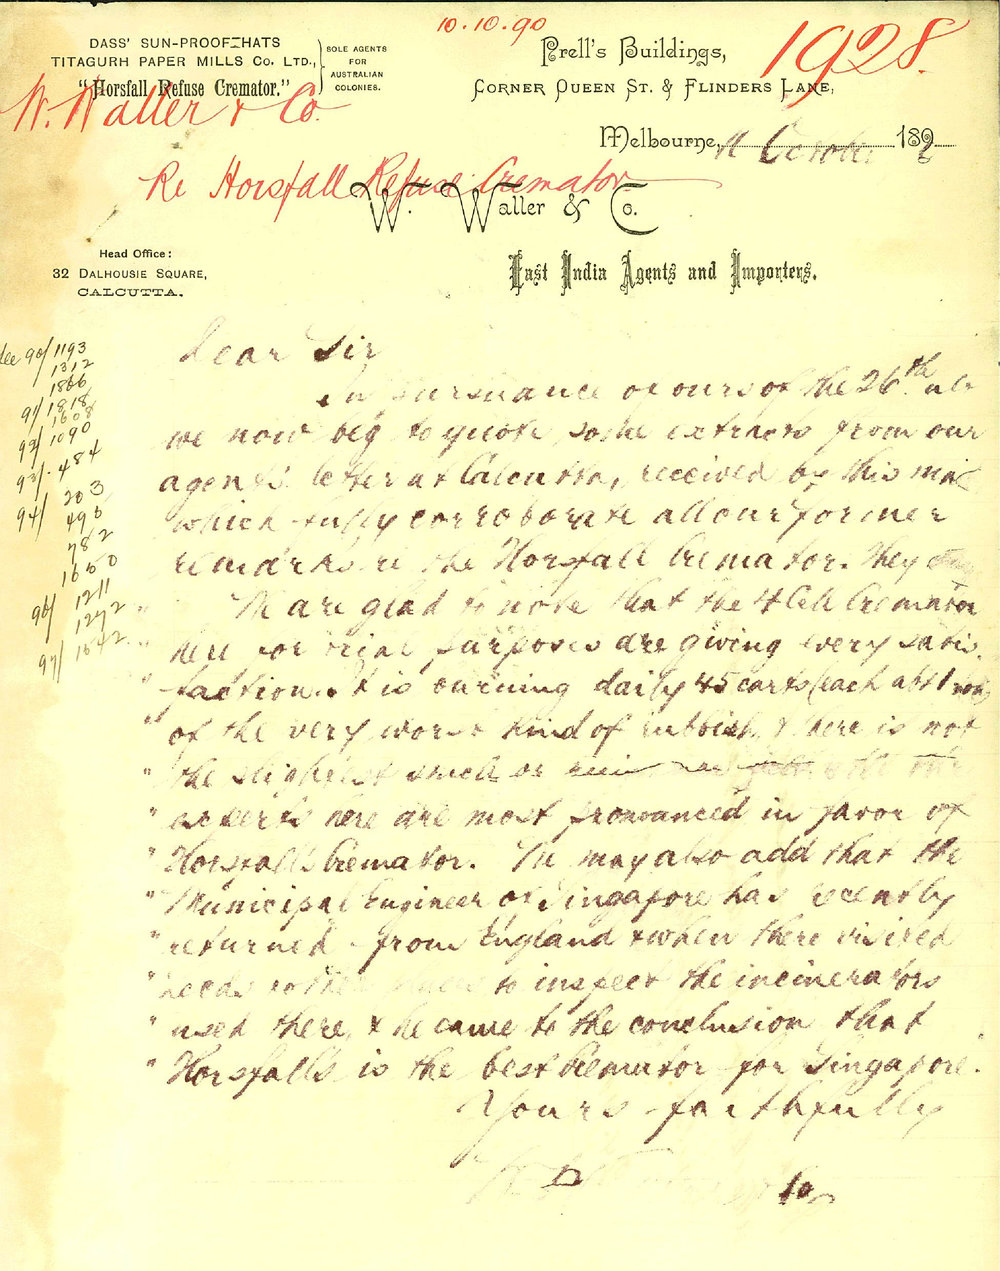 10.10.90
1928.
DASS' SUN-PROOF HATS
TITAGURH PAPER MILLS Co. LTD.,
"Horsfall Refuse Cremator."
SOLE AGENTS
FOR
AUSTRALIAN
COLONIES.
Prell's Buildings,
CORNER QUEEN ST. & FLINDERS LANE,
W. Waller & Co.
Melbourne, October 189
Re Horsfall Refuse Cremator
W. Waller & Co.
Head Office:
32 DALHOUSIE SQUARE,
CALCUTTA.
East India Agents and Importers.
See 90/1193
1312
1866
91/1818
1608
92/1090
93/484
94/203
496
782
1650
96/1211
1272
97/1642
Dear Sir
In pursuance of ours of the 26th ult
we now beg to quote some extracts from our
agents' letter at Calcutta, received by this mail
which fully corroborate all our former
remarks re the Horsfall Cremator. They
" We are glad to note that the 4 Cell Cremator
here for trial purposes are giving every satis
" faction. It is burning daily 45 carts (each abt 1
" of the very worst kind of rubbish, & there is not
" the slightest smell or
" experts here are most pronounced in favor of
" Horsfall's Cremator. We may also add that the
" Municipal Engineer of Singapore has recently
" returned from England & when there visited
" Leeds & other to inspect the incinerators
" used there, & he came to the conclusion that
" Horsfall's is the best Cremator for Singapore.
Yours faithfully